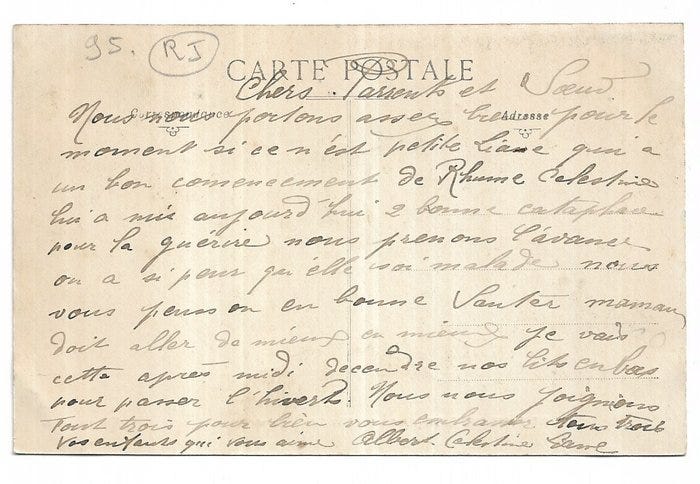 95. RJ
CARTE POSTALE
Chers Parrents et Sœur
Correspondance
Adresse
Nous nous portons assez bien pour le
moment si ce n'est petite Liane qui a
un bon comencement de Rhume Celestine
lui a mis aujourd'hui 2 bonne cataplame
pour la guérire nous prenons l'avance
on a si peur qu'elle soi malade nous
vous penson en bonne Santer maman
doit aller de mieux en mieux je vais
cette après midi decendre nos lits en bas
pour passer l'hivert. Nous nous joignons
Tout trois pour bien vous embrasser tous trois
Vos enfants qui vous aime Albert Celestine